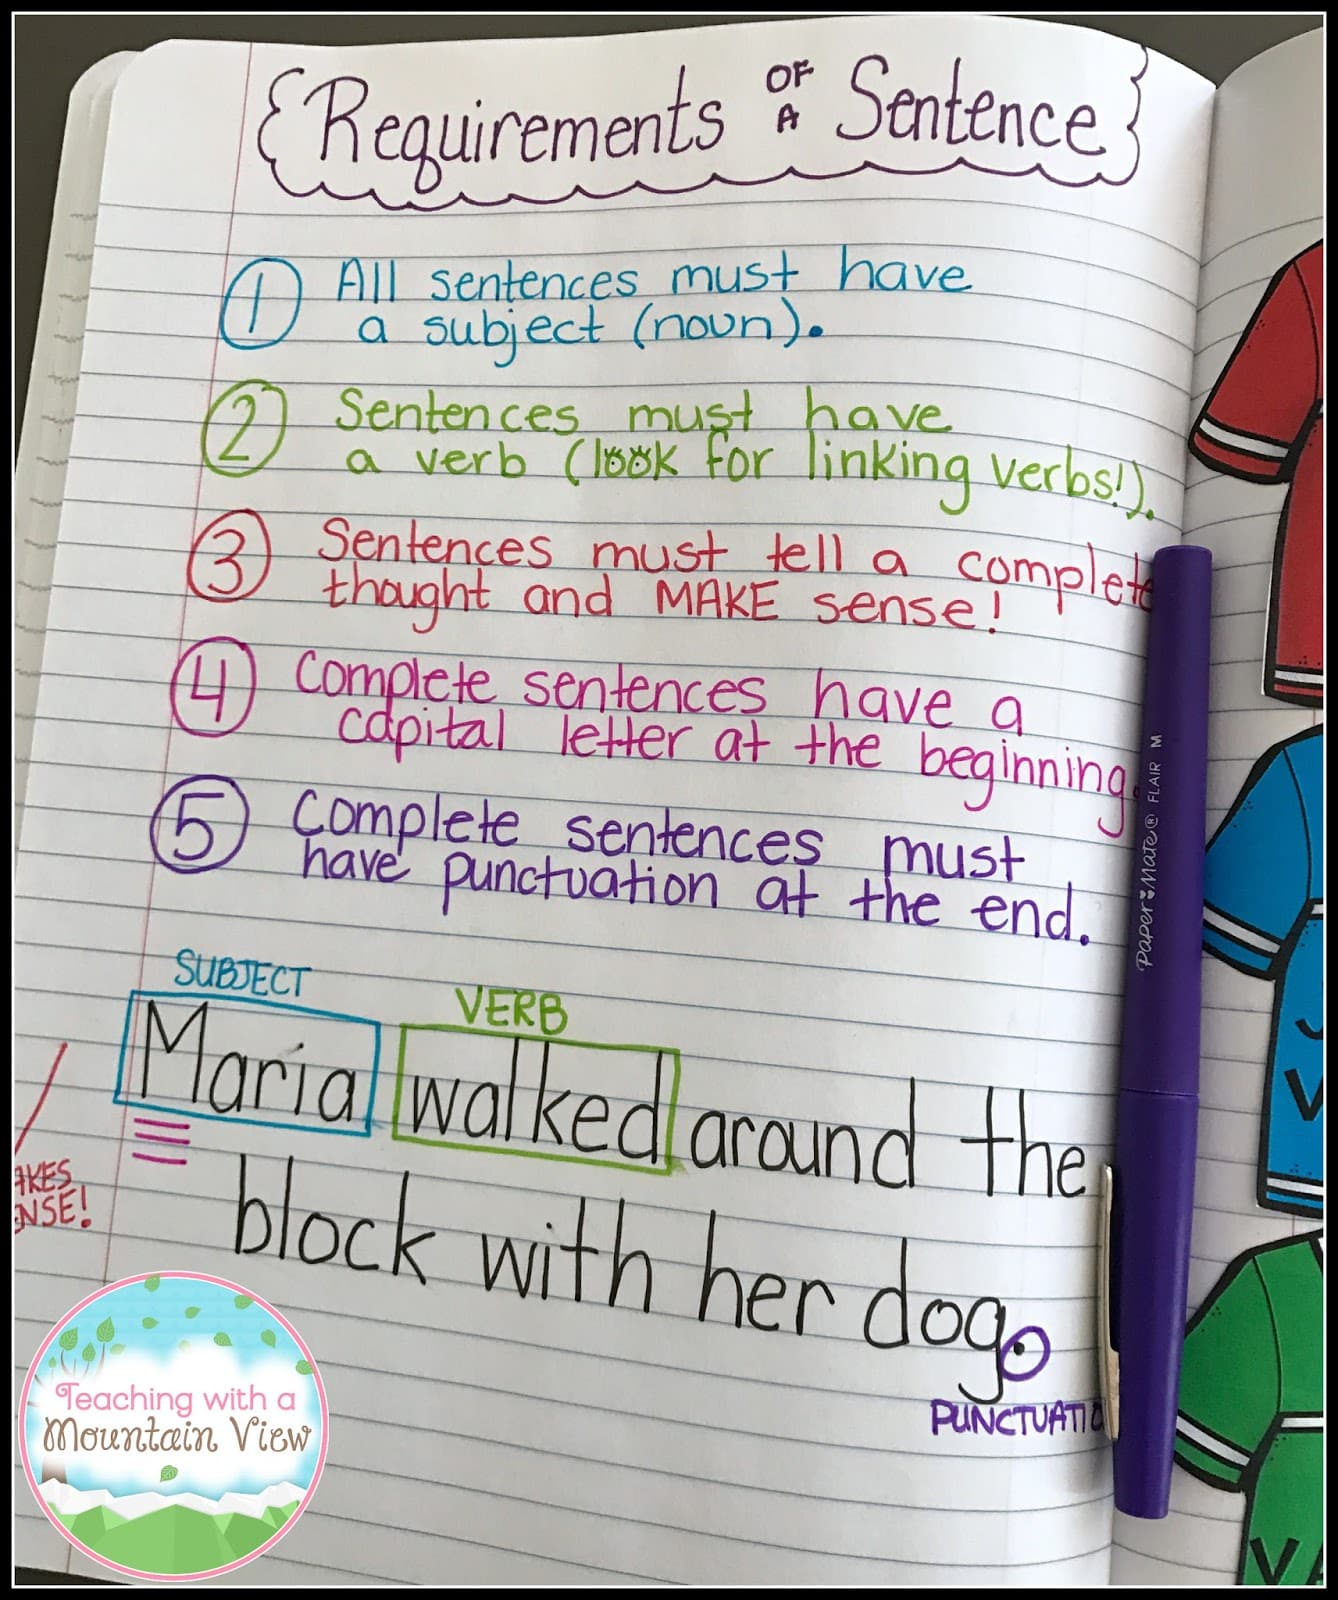 Requirements OF A Sentence
1 All sentences must have
a subject (noun).
2 Sentences must have
a verb (look for linking verbs!).
3 Sentences must tell a complete
thought and MAKE sense!
4 Complete sentences have a
capital letter at the beginning.
5 Complete sentences must
have punctuation at the end.
SUBJECT
VERB
Maria walked around the
block with her dog.
PUNCTUATIO
AKES
ENSE!
Paper Mate® FLAIR M
Teaching with a
Mountain View